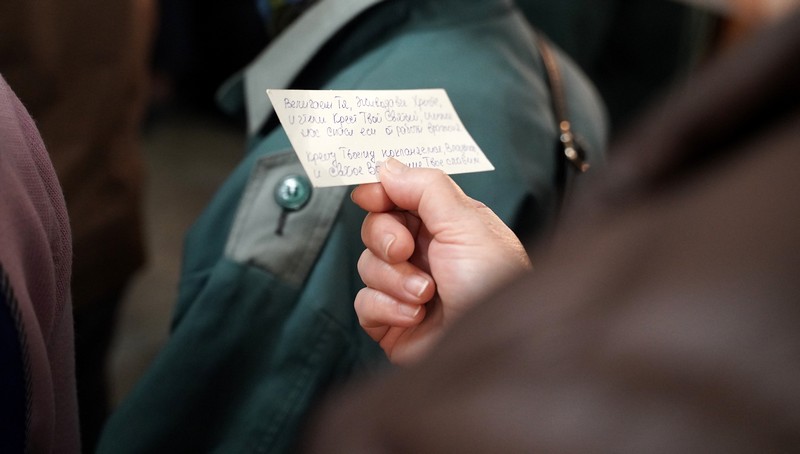 Величаем Тя, Живодавче Христе,
и чтем Крест Твой Святый, имже
нас спасл еси от работы вражия
Кресту Твоему поклоняемся, Владыко,
и Святое Твое славим